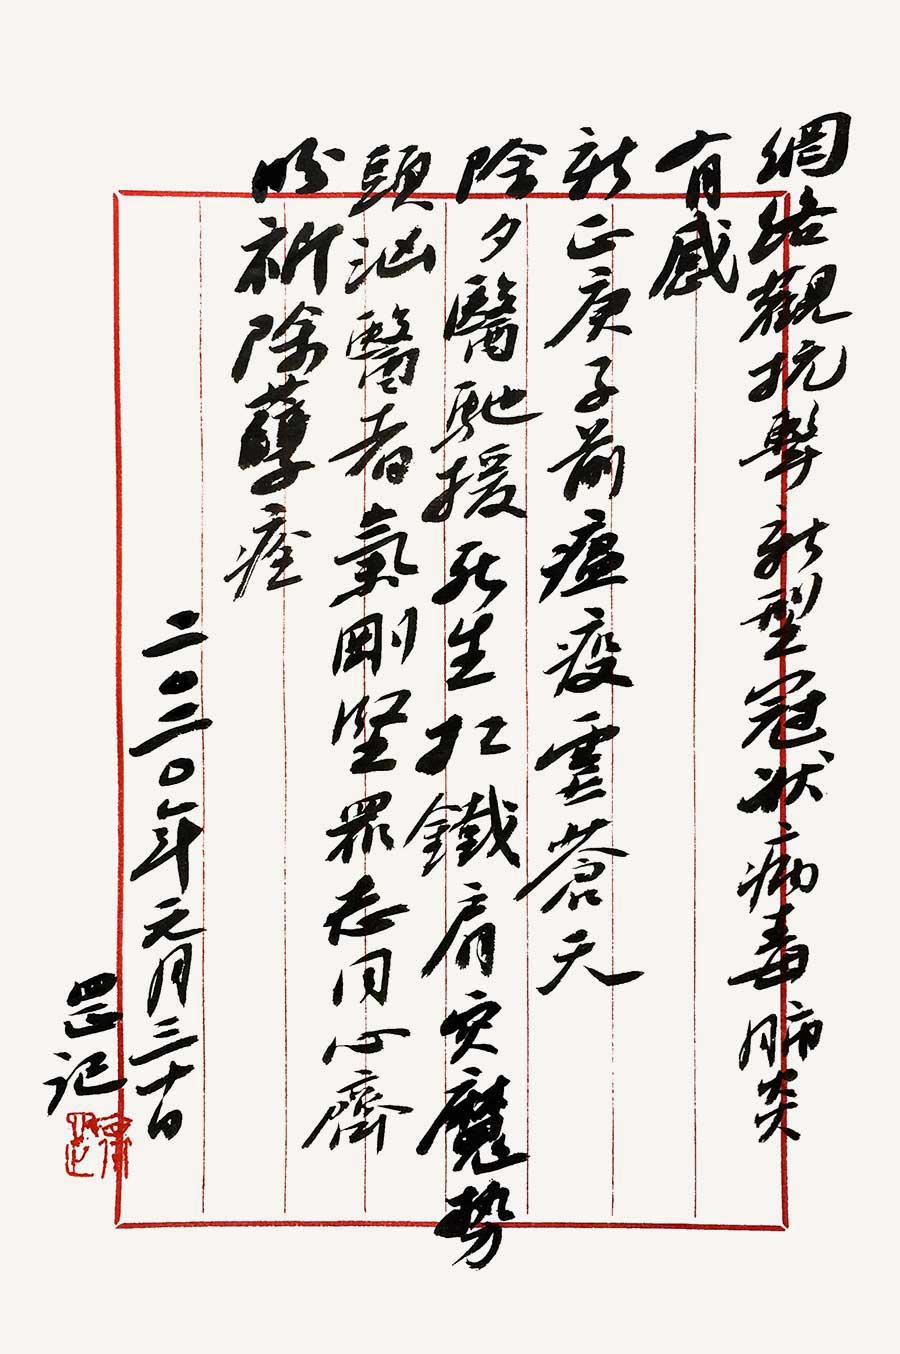 網絡觀抗擊新型冠狀病毒肺炎
有感
新正庚子前瘟疫蒼天
除夕醫馳援死生扛鐵肩灾魔势
頭汹醫者氣剛堅眾志同心齊
盼祈除孽痊
二〇二〇年元月三十日
罡記